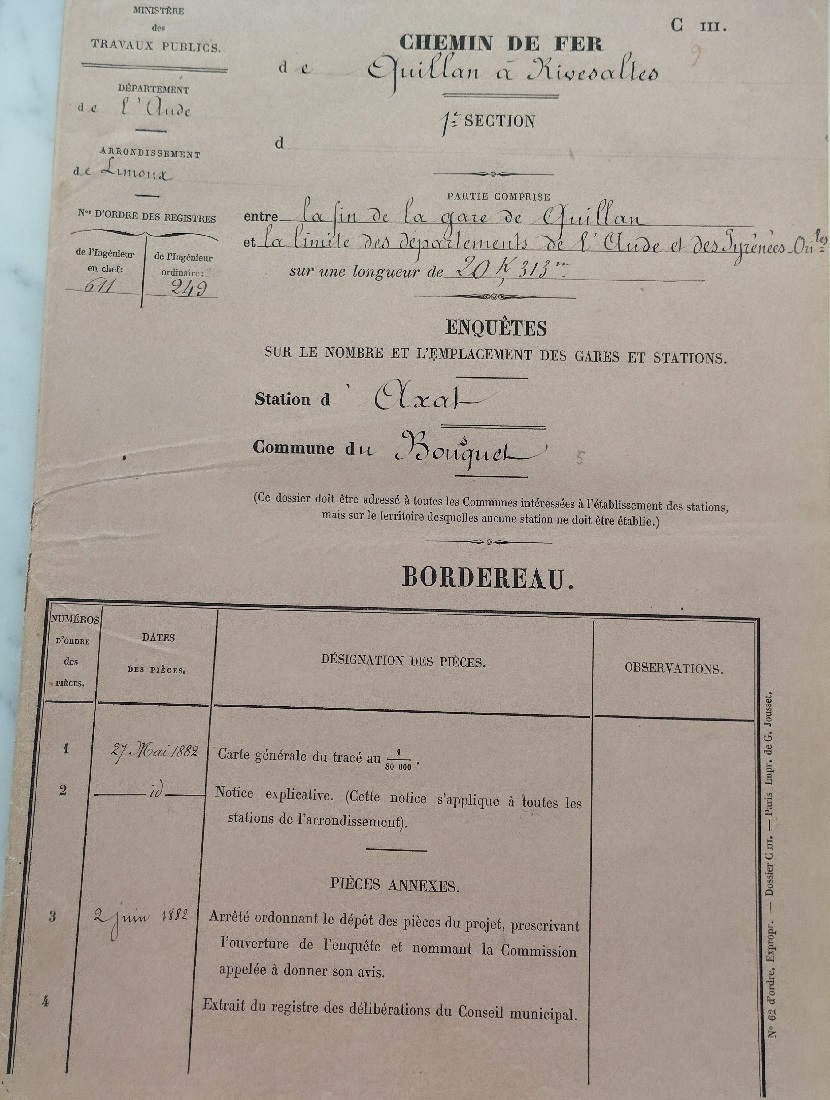 MINISTÈRE
des
TRAVAUX PUBLICS.
DÉPARTEMENT
de l'Aude
ARRONDISSEMENT
de Limoux
Nos D'ORDRE DES REGISTRES
de l'Ingénieur
en chef:
611
de l'Ingénieur
ordinaire:
249
C III.
9
CHEMIN DE FER
de Quillan à Rivesaltes
1re SECTION
d
PARTIE COMPRISE
entre la fin de la gare de Quillan
et la limite des départements de l'Aude et des Pyrénées Ori.les
sur une longueur de 20 K 313m
ENQUÊTES
SUR LE NOMBRE ET L'EMPLACEMENT DES GARES ET STATIONS.
Station d'Axat
Commune du Bousquet
5
(Ce dossier doit être adressé à toutes les Communes intéressées à l'établissement des stations,
mais sur le territoire desquelles aucune station ne doit être établie.)
BORDEREAU.
NUMÉROS
D'ORDRE
des
PIÈCES.
DATES
DES PIÈCES.
DÉSIGNATION DES PIÈCES.
OBSERVATIONS.
1 27 Mai 1882 Carte générale du tracé au 1/80 000.
2 id Notice explicative. (Cette notice s'applique à toutes les
stations de l'arrondissement).
PIÈCES ANNEXES.
3 2 juin 1882 Arrêté ordonnant le dépôt des pièces du projet, prescrivant
l'ouverture de l'enquête et nommant la Commission
appelée à donner son avis.
4 Extrait du registre des délibérations du Conseil municipal.
No 62 d'ordre, Expropr. — Dossier C III. — Paris Impr. de G. Jousset.